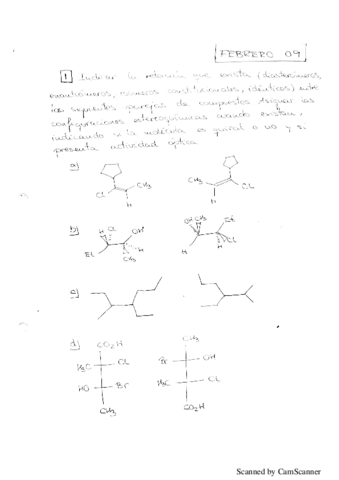 FEBRERO 09
1 Indicar la relación que exista (diasterómeros,
enantiómeros, isómeros constitucionales, idénticos) entre
las siguientes parejas de compuestos. Asignar las
configuraciones estereoquímicas cuando existan,
indicando si la molécula es quiral o no y si
presenta actividad óptica
a)
Cl CH3 H
CH3 Cl H
b)
H Cl OH Et H CH3
OH CH3 Et H Cl
c)
d)
CO2H CH3
H3C Cl Br OH
HO Br H3C Cl
CH3 CO2H
Scanned by CamScanner